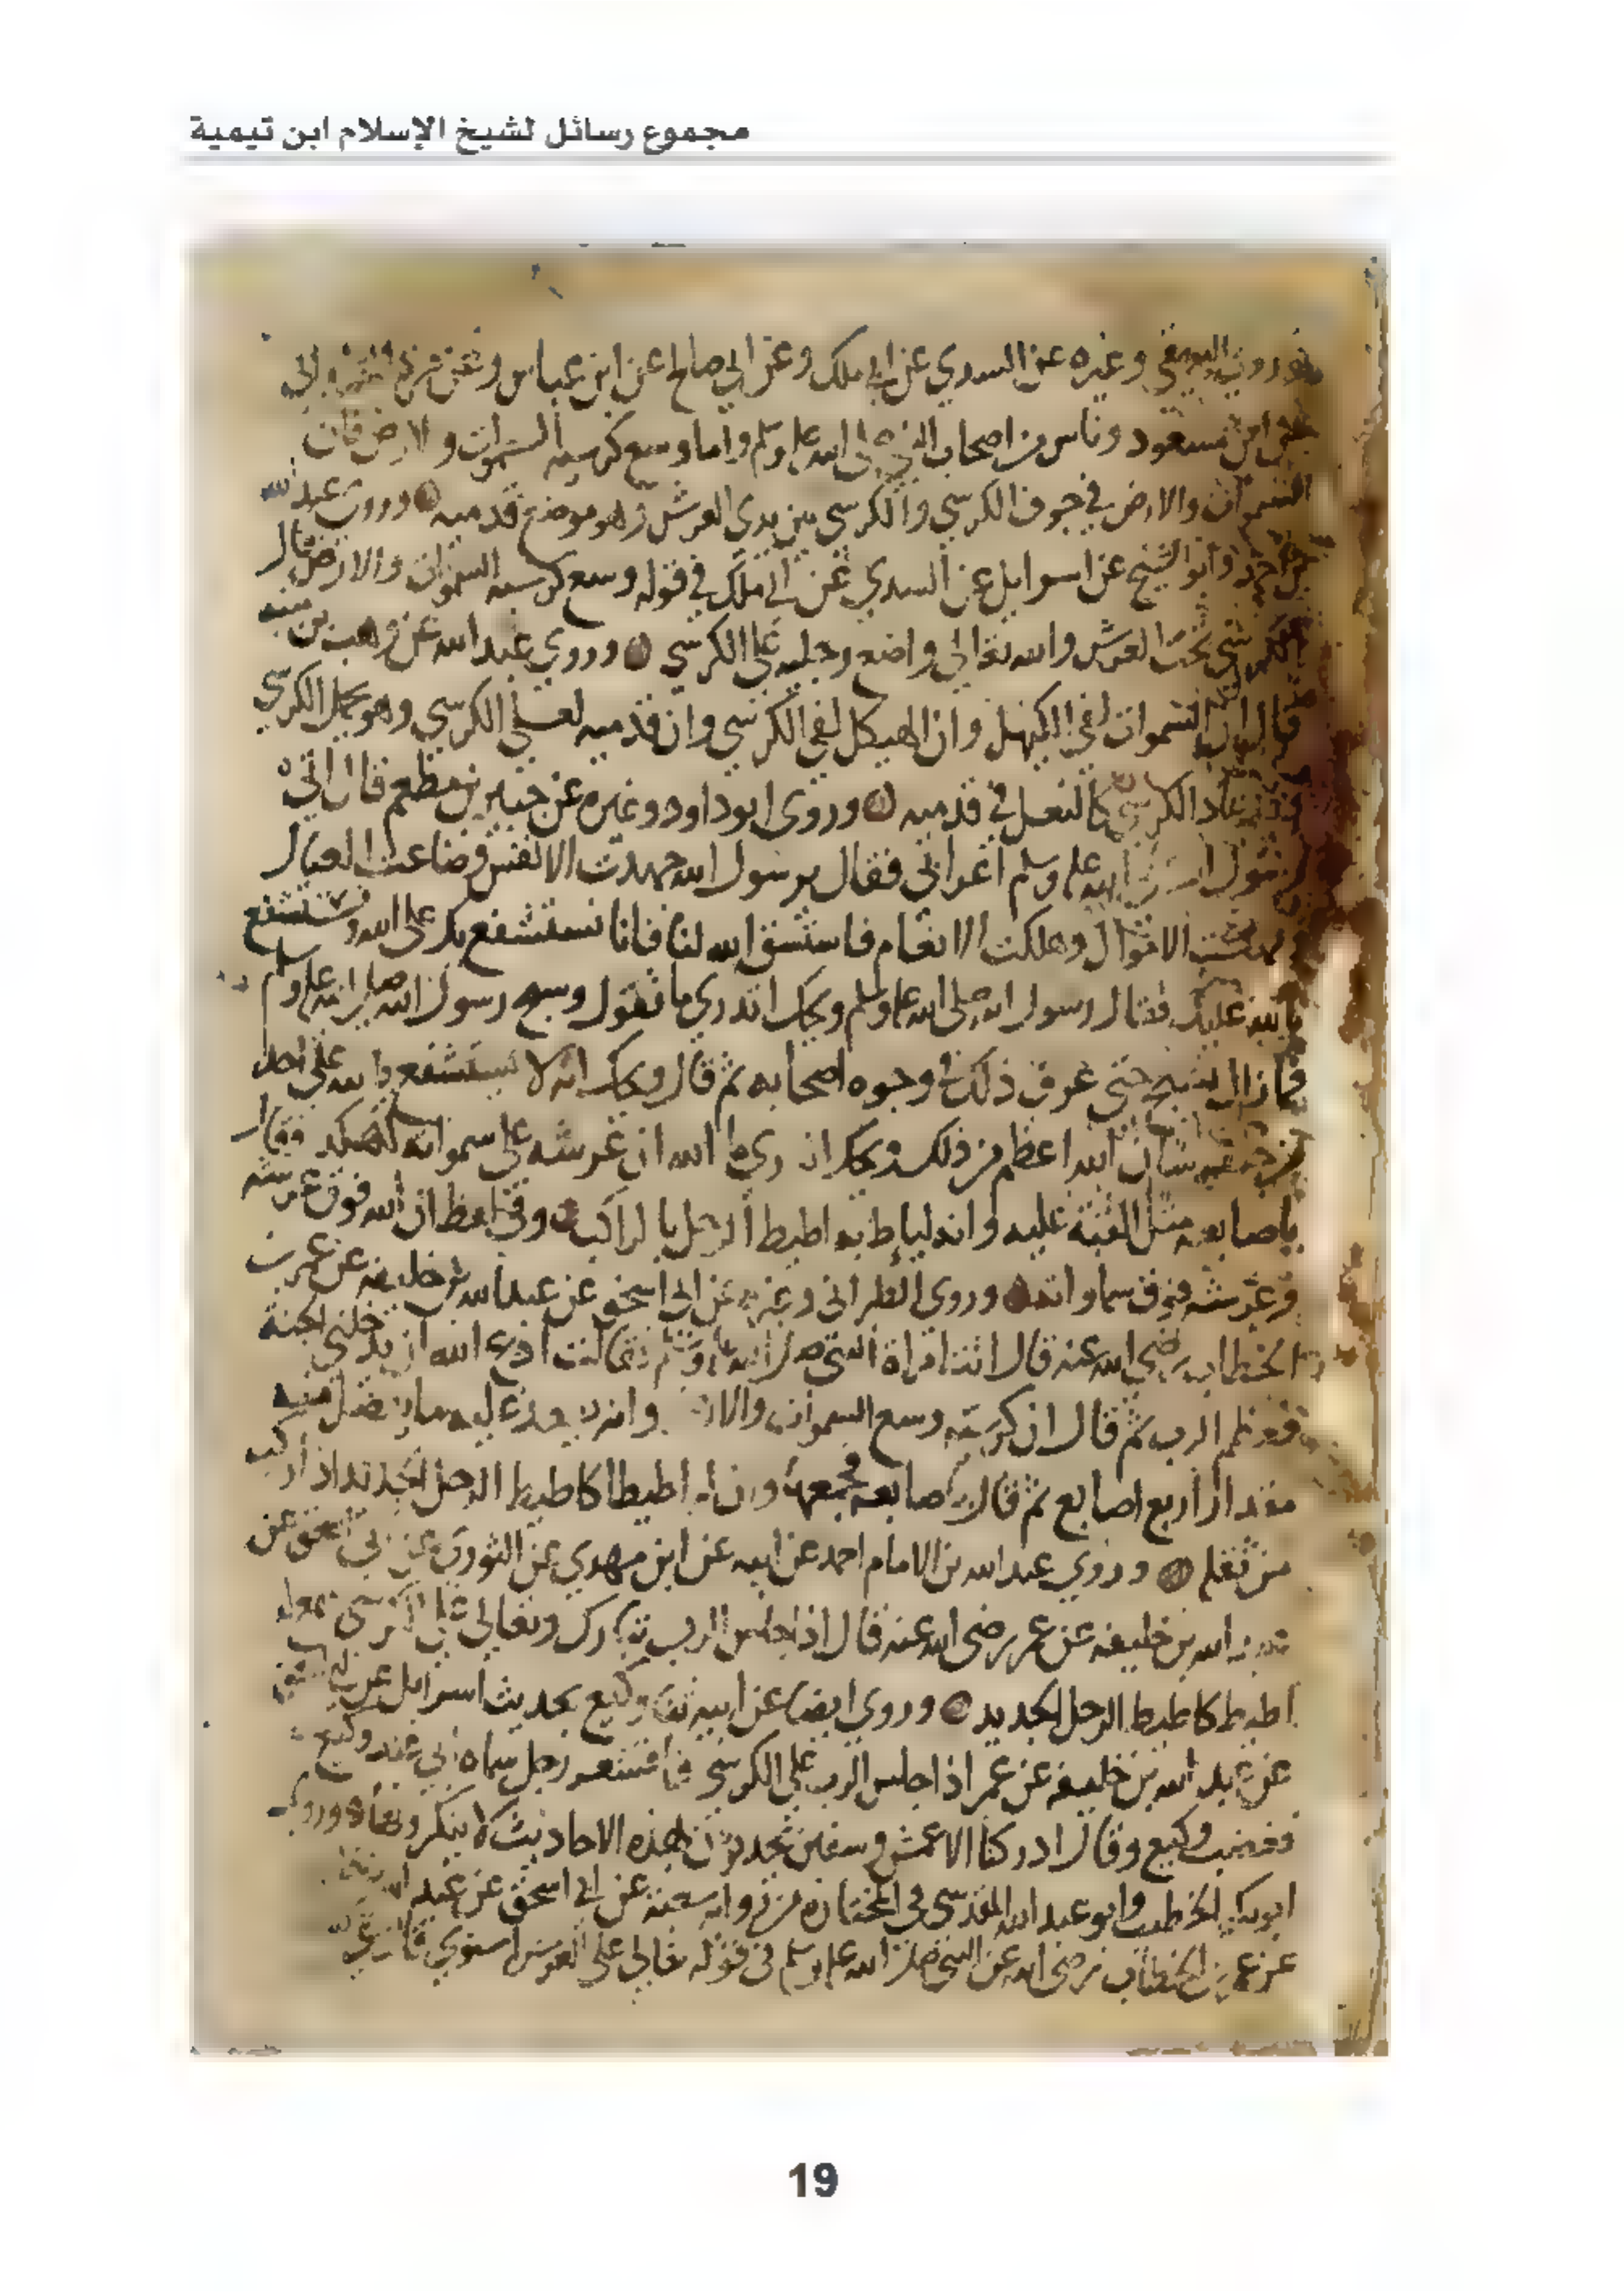 مجموع رسائل لشيخ الإسلام ابن تيمية
وغيره عن السدي عن ابي ملك وعن ابي صالح عن ابن عباس وعن
ابن مسعود وناس من اصحاب النبي صلى الله عليه وسلم واما وسع كرسيه السموات والارض فان
السموات والارض في جوف الكرسي والكرسي بين يدي العرش وهو موضع قدميه وروى عبد الله
وابو الشيخ عن اسرايل عن السدي عن ابي ملك في قوله وسع كرسيه السموات والارض قال
تحت العرش والله تعالى واضع رجليه على الكرسي وروي عبد الله عن وهب بن منبه
قال ان السموات لفي الهيكل وان الهيكل لفي الكرسي وان قدميه لعلى الكرسي وهو يحمل الكرسي
وقد عاد الكرسي كالنعل في قدميه وروى ابو داود وغيره عن جبير بن مطعم قال اتى
رسول الله صلى الله عليه وسلم اعرابي فقال يرسول الله جهدت الانفس وضاعت العيال
الاموال وهلكت الانعام فاستسق الله لنا فانا نستشفع بك على الله ونستشفع
بالله عليك فقال رسول الله صلى الله عليه وسلم ويحك اتدري ما تقول وسبح رسول الله صلى الله عليه وسلم
فما زال يسبح حتى عرف ذلك في وجوه اصحابه ثم قال ويحك انه لا يستشفع بالله على احد
من خلقه شان الله اعظم من ذلك ويحك اتدري ما الله ان عرشه على سمواته لهكذا وقال
باصابعه مثل القبة عليه وانه ليإط به اطيط الرحل بالراكب وفي لفظ ان الله فوق عرشه
وعرشه فوق سماواته وروى الطبراني وغيره عن ابي اسحق عن عبد الله بن خليفه عن عمر بن
الخطاب رضي الله عنه قال اتت امراة النبي صلى الله عليه وسلم فقالت ادع الله ان يدخلني الجنة
فعظم الرب ثم قال ان كرسيه وسع السموات والارض وانه يقعد عليه ما يفضل منه
مقدار اربع اصابع ثم قال باصابعه فجمعها وان له اطيطا كاطيط الرحل الجديد اذا ركب
من ثقله وروي عبد الله بن الامام احمد عن ابيه عن ابن مهدي عن الثوري عن ابي اسحق عن
عبد الله بن خليفه عن عمر رضي الله عنه قال اذا جلس الرب تبارك وتعالى على الكرسي سمع له
اطيط كاطيط الرحل الجديد وروي ايضا عن ابيه ثنا وكيع بحديث اسرايل عن ابي اسحق
عن عبد الله بن خليفه عن عمر اذا جلس الرب على الكرسي فاقشعر رجل سماه ابي عند وكيع
فغضب وكيع وقال ادركنا الاعمش وسفين يحدثون بهذه الاحاديث لا ينكرونها وروى
ابو بكر الخطيب وابو عبد الله المقدسي في المختاره من رواية شعبة عن ابي اسحق عن عبد الله
عن عمر بن الخطاب رضي الله عن النبي صلى الله عليه وسلم في قوله تعالى على العرش استوى
19